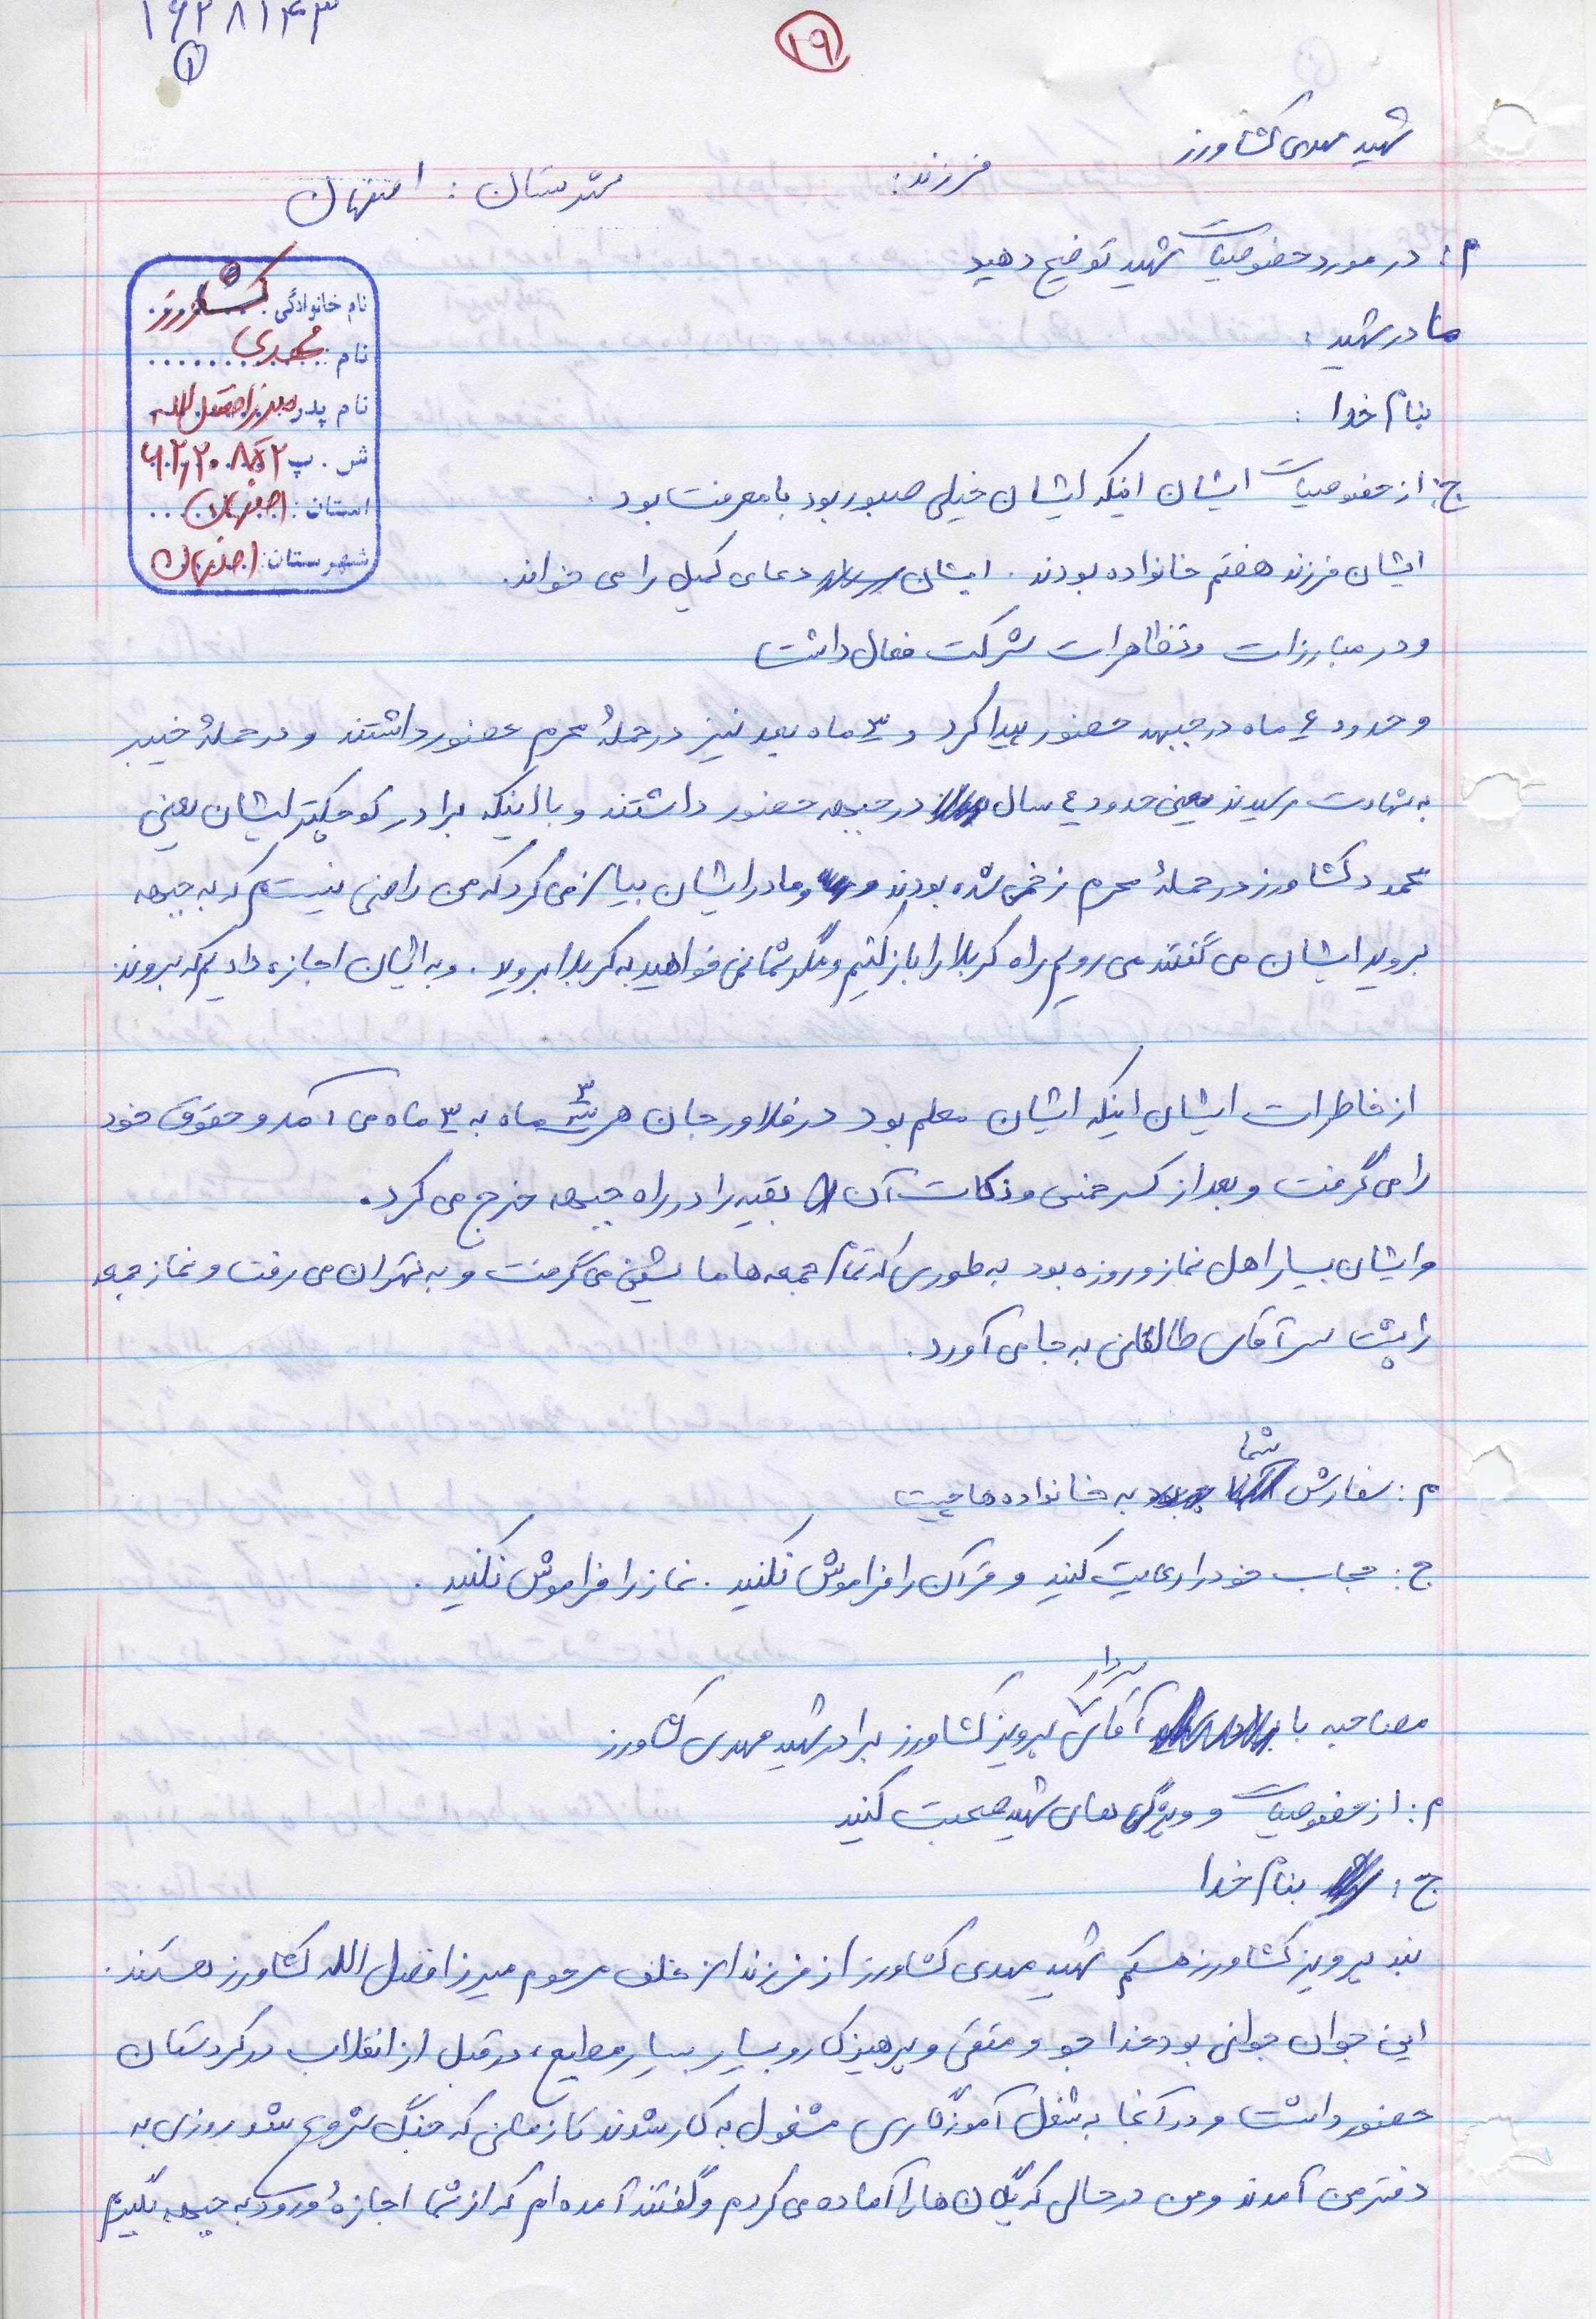 ۱۶۲۸۱۴۳
۱
۱۹
شهید مهدی کشاورز
فرزند: شهرستان: اصفهان
نام خانوادگی: کشاورز
نام: مهدی
نام پدر: میرزا فضل الله
ش. پ
استان: اصفهان
شهرستان: اصفهان
م: در مورد خصوصیات شهید توضیح دهید
مادر شهید:
بنام خدا:
ج: از خصوصیات ایشان اینکه ایشان خیلی صبور بود با معرفت بود.
ایشان فرزند هفتم خانواده بودند. ایشان دعای کمیل را می خواند.
و در مبارزات و تظاهرات شرکت فعال داشت
و حدود ۶ ماه در جبهه حضور پیدا کرد و ۳ ماه بعد نیز در حملهٔ محرم حضور داشتند و در حملهٔ خیبر
به شهادت رسیدند یعنی حدود ۴ سال در جبهه حضور داشتند و با اینکه برادر کوچکتر ایشان یعنی
محمود کشاورز در حملهٔ محرم زخمی شده بودند و مادر ایشان بیان می کرد که من راضی نیستم که به جبهه
بروید ایشان می گفتند می رویم راه کربلا را باز کنیم و مگر شما نمی خواهید به کربلا بروید. و به ایشان اجازه دادیم که بروند
از خاطرات ایشان اینکه ایشان معلم بود در فلاورجان هر ۳ ماه به ۳ ماه می آمد و حقوق خود
را می گرفت و بعد از کسر خمس و زکات آن بقیه را در راه جبهه خرج می کرد.
و ایشان بسیار اهل نماز و روزه بود به طوری که تمام جمعه ها ماشین می گرفت و به تهران می رفت و نماز جمعه
را پشت سر آقای طالقانی به جا می آورد.
م: سفارش شما به خانواده ها چیست
ج: حجاب خود را رعایت کنید و قرآن را فراموش نکنید. نماز را فراموش نکنید.
مصاحبه با سردار آقای پرویز کشاورز برادر شهید مهدی کشاورز
م: از خصوصیات و ویژگی های شهید صحبت کنید
ج: بنام خدا
بنده پرویز کشاورز هستم شهید مهدی کشاورز از فرزندان خلف مرحوم میرزا فضل الله کشاورز هستند.
این جوان جوانی بود خدا جو و متقی و پرهیزکار و بسیار بسیار مطیع، در قبل از انقلاب در کردستان
حضور داشت و در آنجا به شغل آموزگاری مشغول به کار شدند تا زمانی که جنگ شروع شد روزی به
دفتر من آمدند و من در حالی که گردان ها را آماده می کردم و گفتند آمده ام که از شما اجازهٔ ورود به جبهه بگیرم